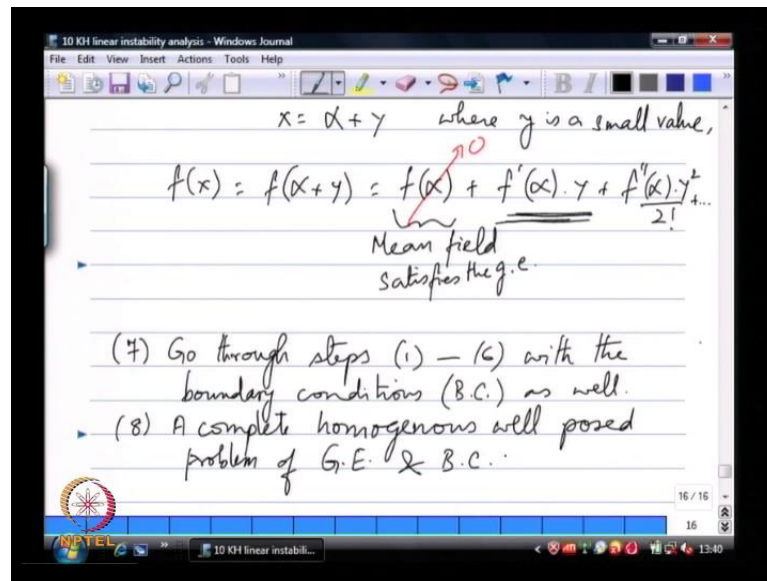 10 KH linear instability analysis - Windows Journal
File Edit View Insert Actions Tools Help
x = α + y where y is a small value,
f(x) = f(α+y) = f(α) + f'(α).y + f''(α).y²/2! + ...
0
Mean field
satisfies the g.e.
(7) Go through steps (1) – (6) with the
boundary conditions (B.C.) as well.
(8) A complete homogenous well posed
problem of G.E. & B.C.
16 / 16
16
NPTEL
10 KH linear instabili...
13:40